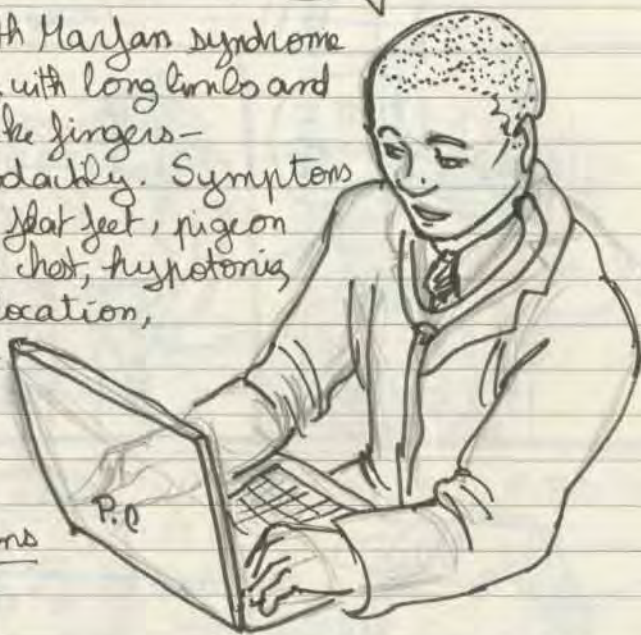 th Marfan syndrome
with long limbs and
ke fingers-
dactily. Symptons
flat feet, pigeon
chest, hypotonia,
location,
P.Q
ns